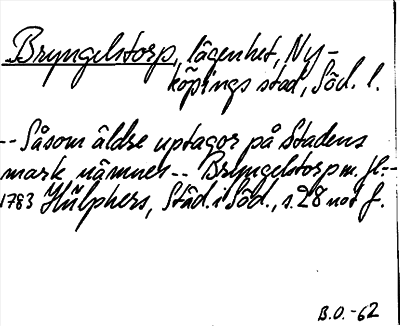 Bryngelstorp, lägenhet, Ny-
köpings stad, Söd. l.
-- Såsom äldre uptagor på Stadens
mark nämnes -- Bryngelstorp m. fl.--
1783 Hülphers, Städ. i Söd., s. 28 not f.
B.O.-62